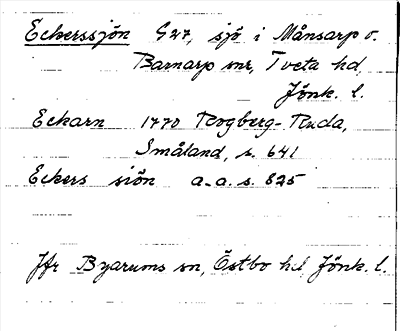 Eckerssjön G27, sjö i Månsarp o.
Barnarp snr, Tveta hd,
Jönk. l.
Eckarn 1770 Rogberg-Ruda,
Småland, s. 641
Eckers siön a.a.s. 825
Jfr Byarums sn, Östbo hd, Jönk. l.